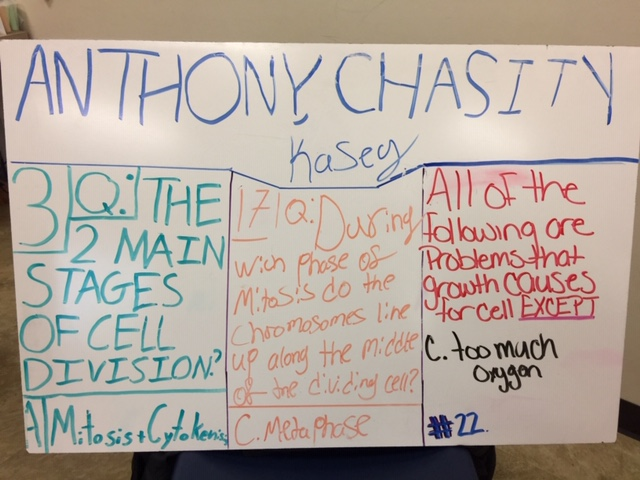 ANTHONY, CHASITY
Kasey
3 Q: THE
2 MAIN
STAGES
OF CELL
DIVISION?
A Mitosis + Cytokenisis
17 Q: During
wich phase of
Mitosis do the
chromosomes line
up along the middle
of the dividing cell?
C. Metaphase
All of the
following are
Problems that
growth causes
for cell EXCEPT
C. too much
oxygen
#22.